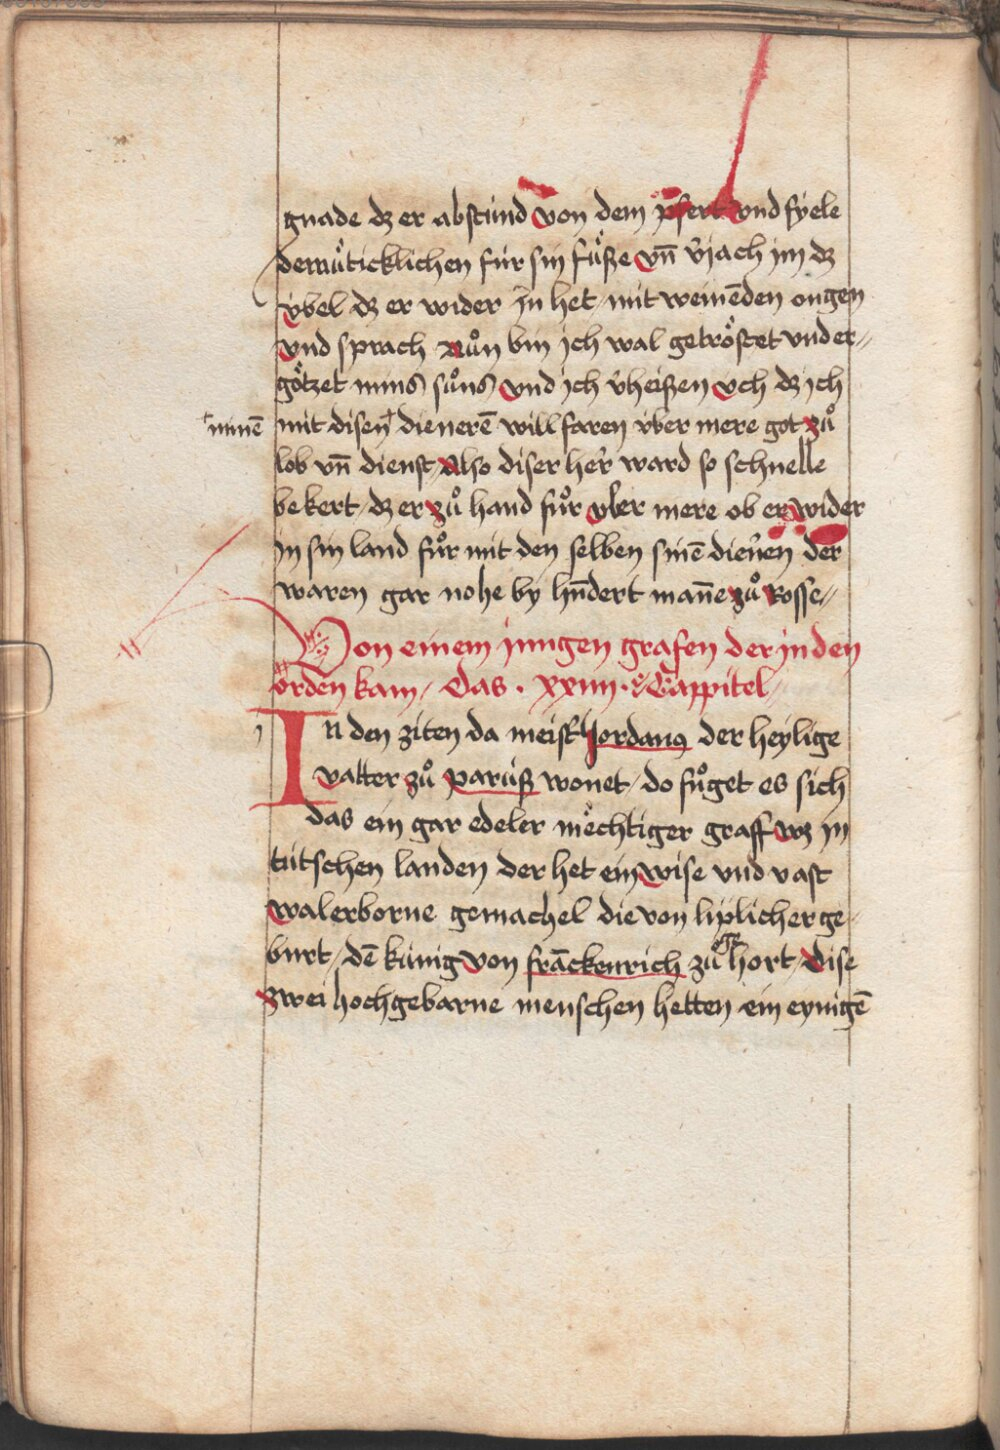 gnade dz er abstund von dem pfert vnd fyele
demuͤticklichen fur sin fuͤße vn̄ v̄jach im dz
vbel dz er wider in het / mit weinēden ougen
vnd sprach Nuͦn bin jch wal getroͤstet vnd er⸗
goͤtzet mins suͦns vnd jch v̄heißen vch dz jch
mit disen ⸆ dienerē will faren vber mere got zuͦ
⸆ minē
lob vn̄ dienst / Also diser her̄ ward so schnelle
bekert / dz er zuͦ hand fuͦr vber mere ob er wider
jn sin land fuͦr mit den selben sinē dien̄en der
waren gar nohe by hn̄dert man̄e zuͦ Rosse⸗
Von einem jungen grafen der jn den
orden kam / Das · xxiiii · Cappitel⸗
In den ziten da meist̄ Jordanꝰ der heylige
vatter zuͦ paruß wonet / do fuͦget es sich
das ein gar edeler mechtiger graff wz in
tutschen landen der het ein wise vnd vast
walerborne gemachel die von liplicher ge⸗
burt / dē kunig von franckenrich zuͦ hort / Dise
zwei hochgebarne menschen hetten ein eynigē